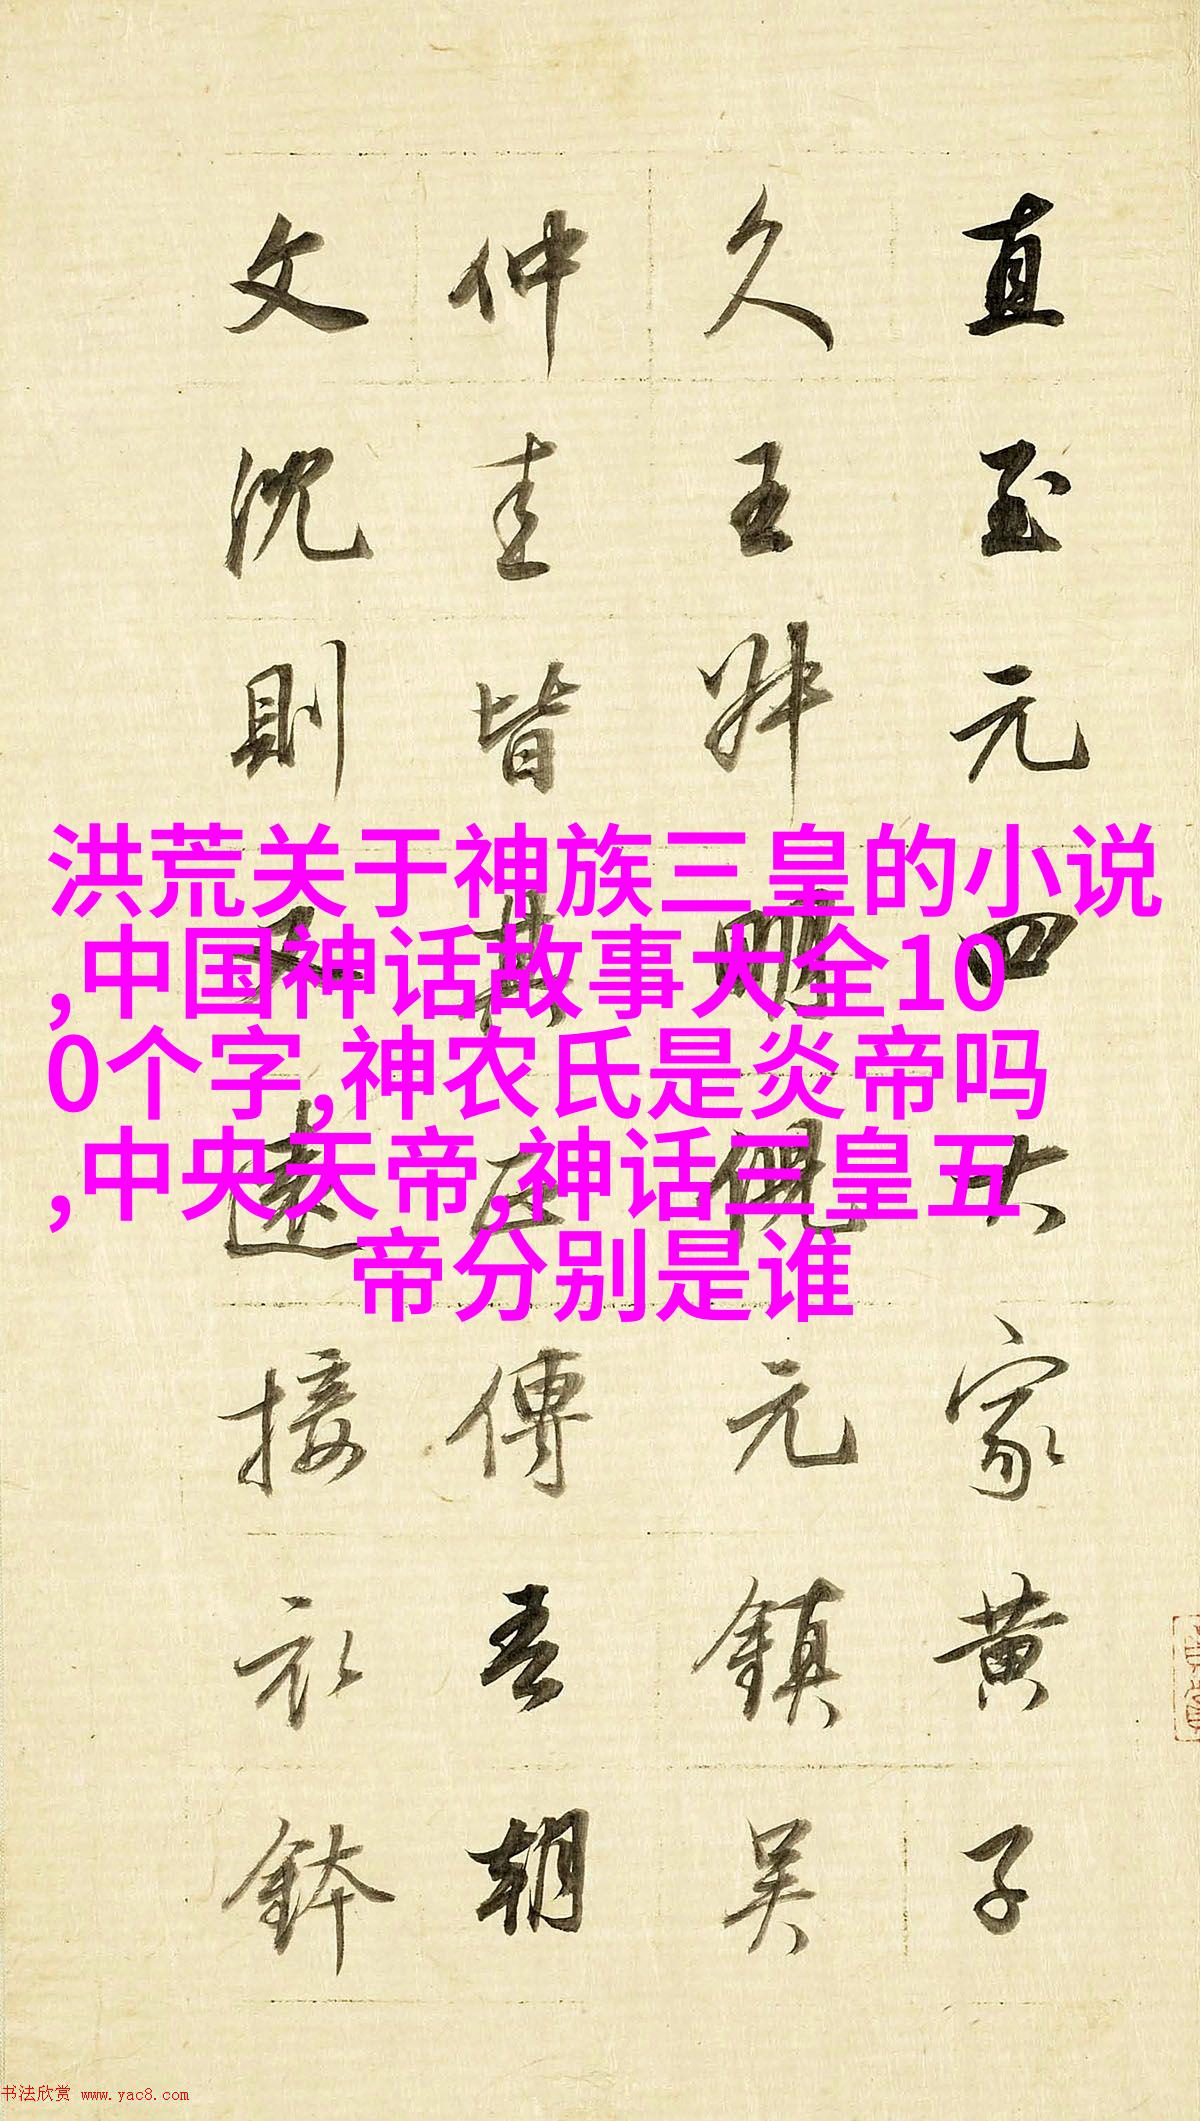 直至元四大家黄子
久王叔明倪元鎮吴
仲圭皆其正傳吾朝
文沈則又遠接衣鉢
洪荒关于神族三皇的小说
,中国神话故事大全10
0个字,神农氏是炎帝吗
,中央天帝,神话三皇五
帝分别是谁
书法欣赏 www.yac8.com